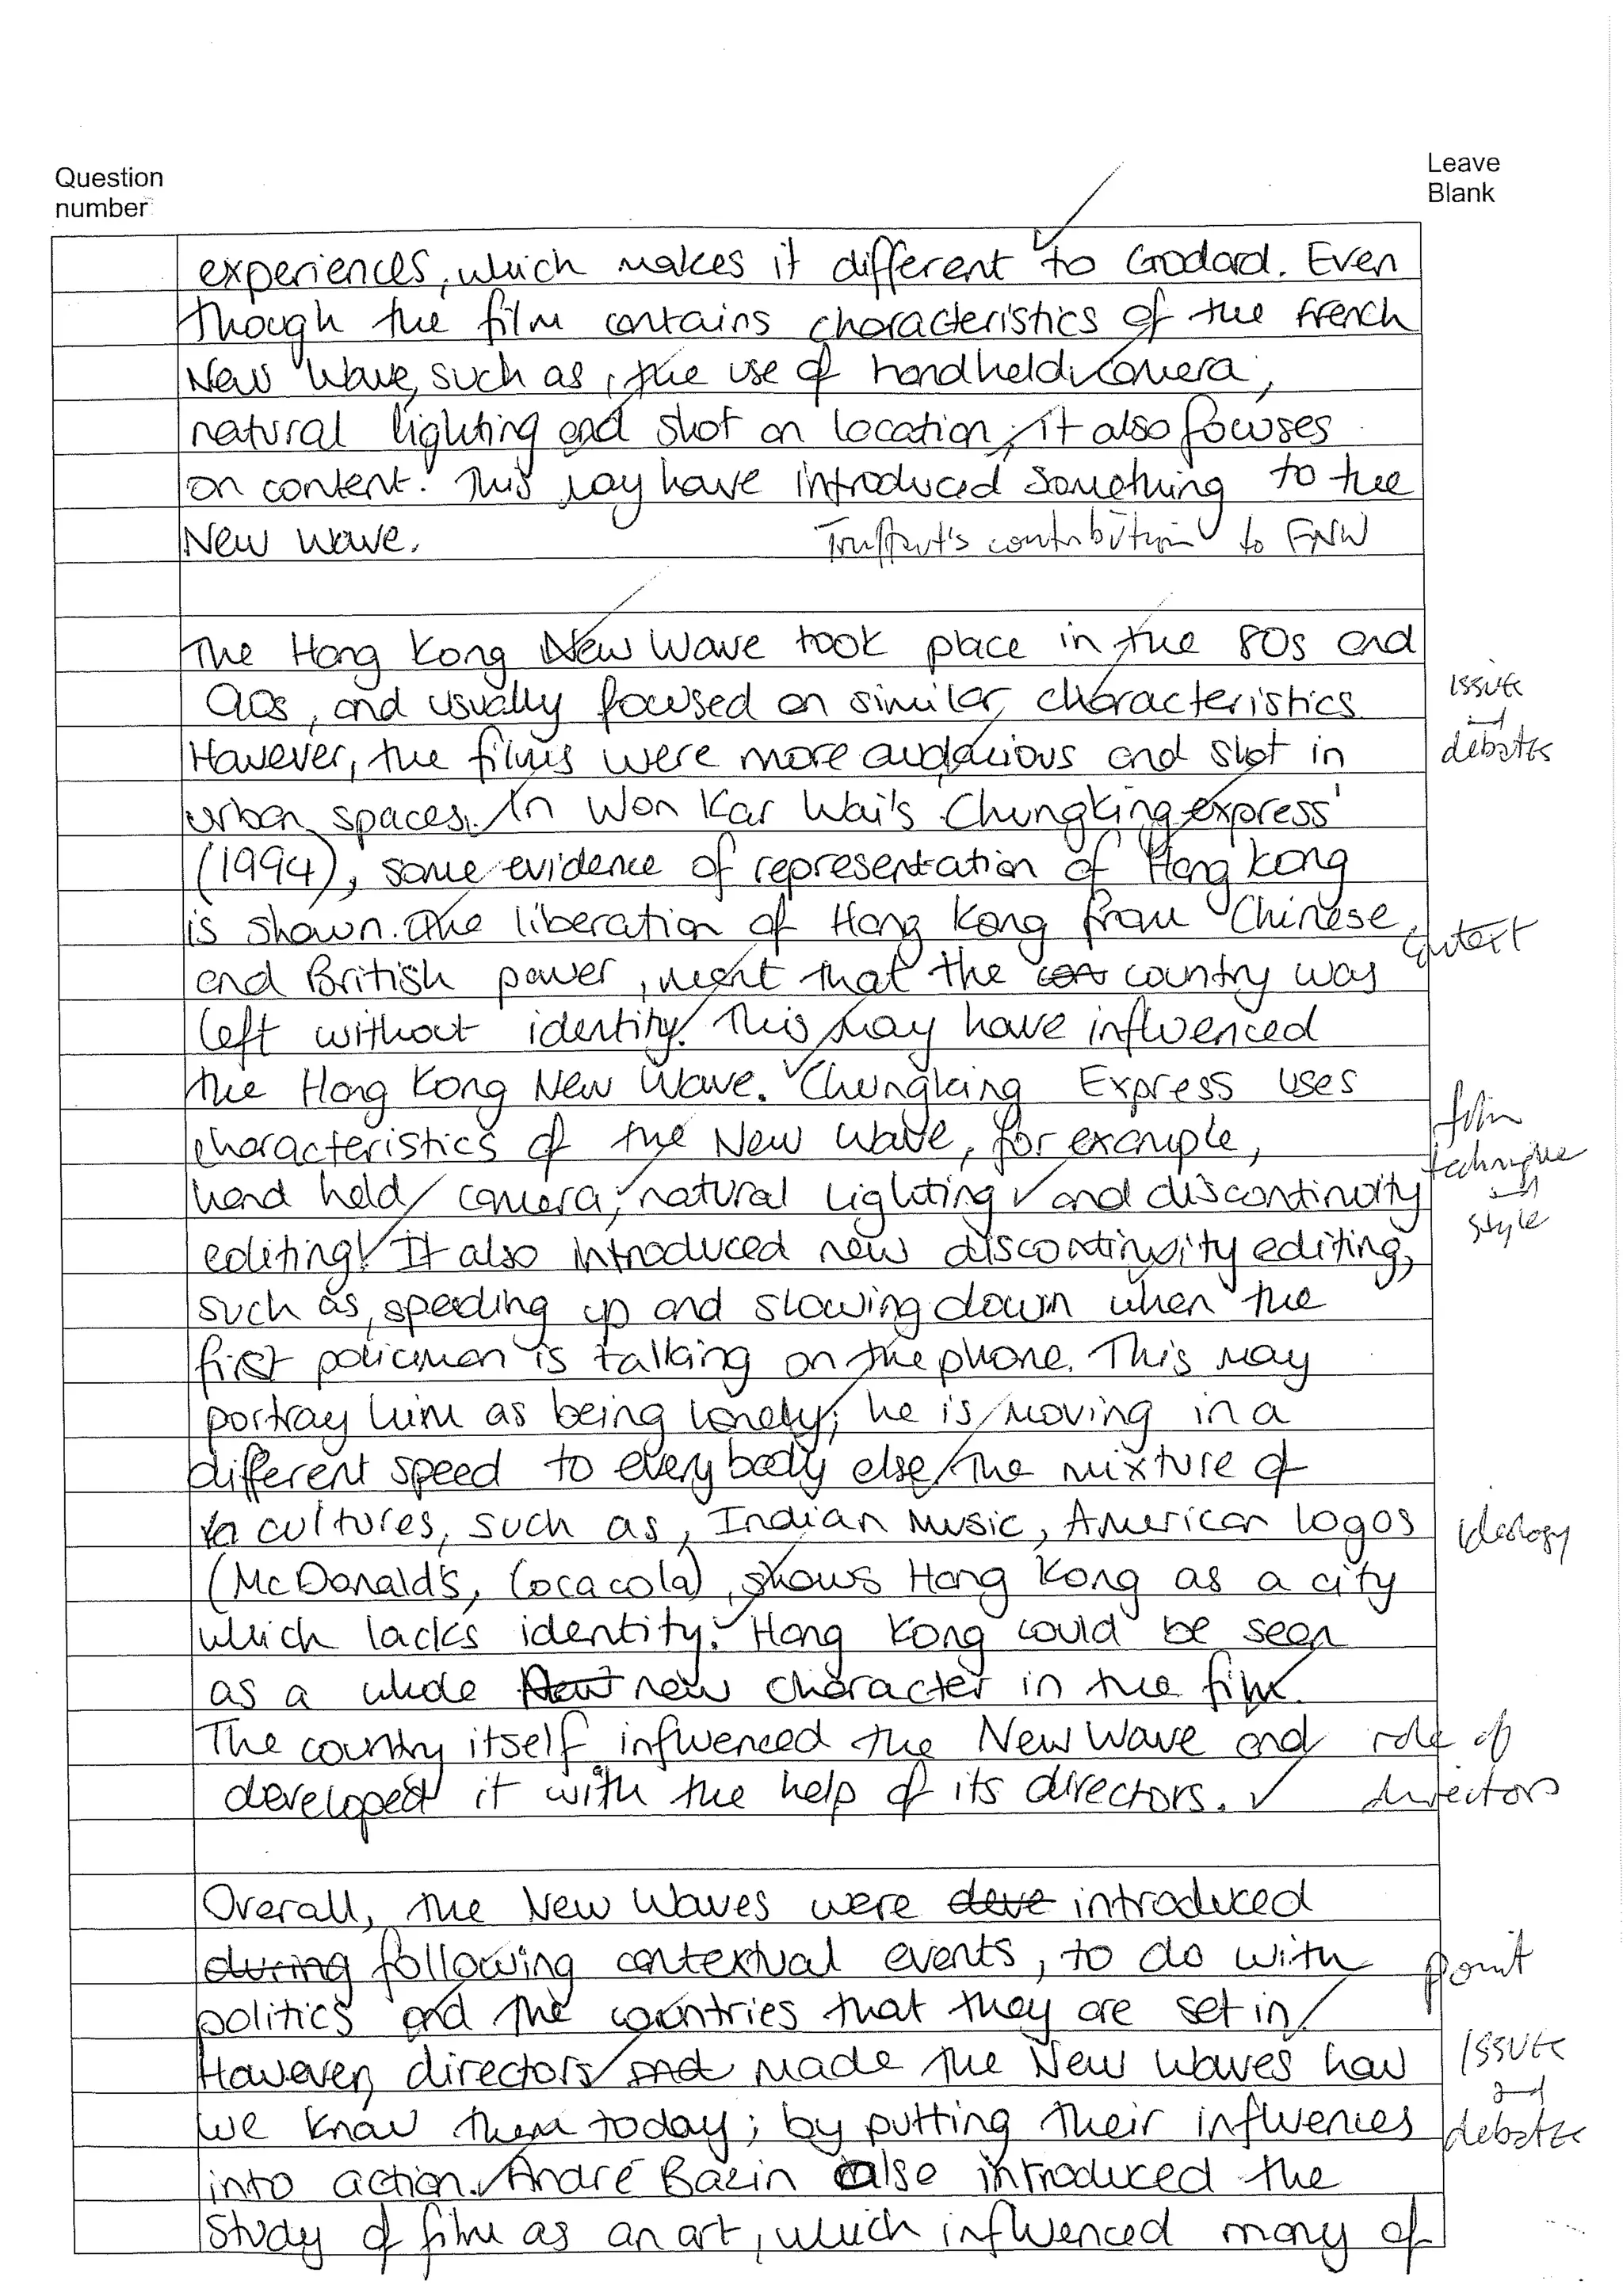 Question
number
Leave
Blank
experiences, which makes it different to Godard. Even
though the film contains characteristics of the French
New Wave, such as, the use of handheld camera,
natural lighting and shot on location, it also focuses
on content. This may have introduced something to the
New Wave.
Truffaut's contribution to FNW
The Hong Kong New Wave took place in the 80s and
90s, and usually focused on similar characteristics.
issues
and
debates
However, the films were more audacious and shot in
urban spaces. In Won Kar Wai's 'Chungking express'
(1994), some evidence of representation of Hong Kong
is shown. The liberation of Hong Kong from Chinese
context
and British power, ment that the con country was
left without identity. This may have influenced
the Hong Kong New Wave. Chungking Express uses
characteristics of the New Wave, for example,
film
technique
and
style
hand held camera, natural lighting and discontinuity
editing. It also introduced new discontinuity editing,
such as, speeding up and slowing down when the
first policiman is talking on the phone. This may
portray him as being lonely; he is moving in a
different speed to everybody else. The mixture of
cultures, such as, Indian music, American logos
ideology
(McDonald's, Coca cola), shows Hong Kong as a city
which lacks identity. Hong Kong could be seen
as a whole New new character in the film.
The country itself influenced the New Wave and
role of
directors
developed it with the help of its directors.
Overall, the New Waves were deve introduced
during following contextual events, to do with
point
politics and the countries that they are set in.
However, directors and made the New Waves how
issues
and
debates
we know them today; by putting their influences
into action. André Bazin also introduced the
study of film as an art, which influenced many of